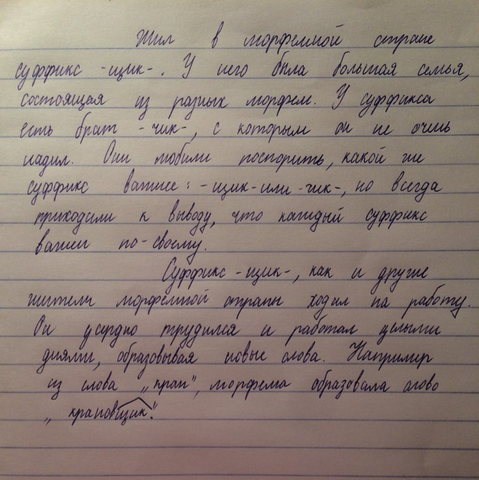 Жил в морфемной стране
суффикс -щик-. У него была большая семья,
состоящая из разных морфем. У суффикса
есть брат -чик-, с которым он не очень
ладил. Они любили поспорить, какой же
суффикс важнее: -щик- или -чик-, но всегда
приходили к выводу, что каждый суффикс
важен по-своему.
Суффикс -щик-, как и другие
жители морфемной страны ходил на работу.
Он усердно трудился и работал целыми
днями, образовывая новые слова. Например
из слова „кран", морфема образовала слово
„крановщик".